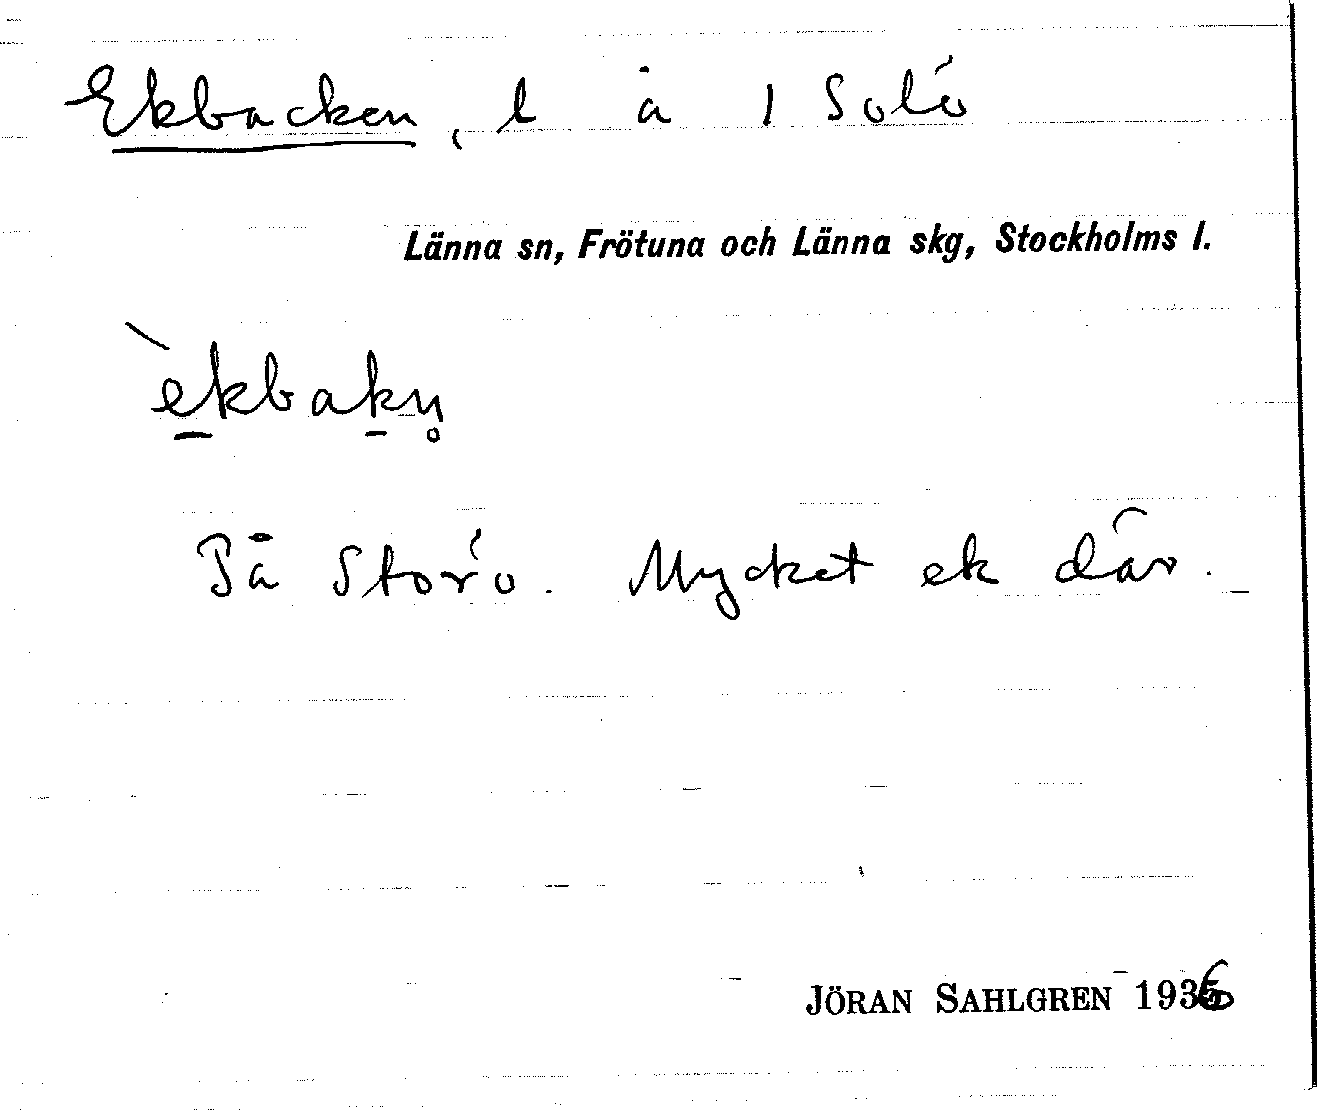 Ekbacken, l å 1 Solö
Länna sn, Frötuna och Länna skg, Stockholms l.
`ekbakn̥
På Storö. Mycket ek där.
JÖRAN SAHLGREN 1936